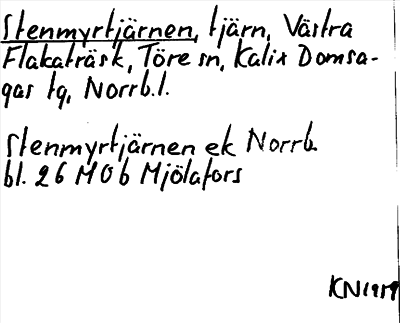 Stenmyrtjärnen, tjärn, Västra
Flakaträsk, Töre sn, Kalix Domsa-
gas tg, Norrb.l.
Stenmyrtjärnen ek Norrb.
bl. 26 M0b Mjölafors
KN1959